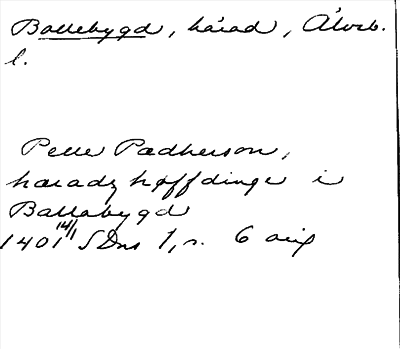 Bollebygd, härad, Älvsb.
l.
Pelle Pædherson,
haradz høffdinge i
Ballabygd
1401 14/1 SDns 1, s. 6 orig